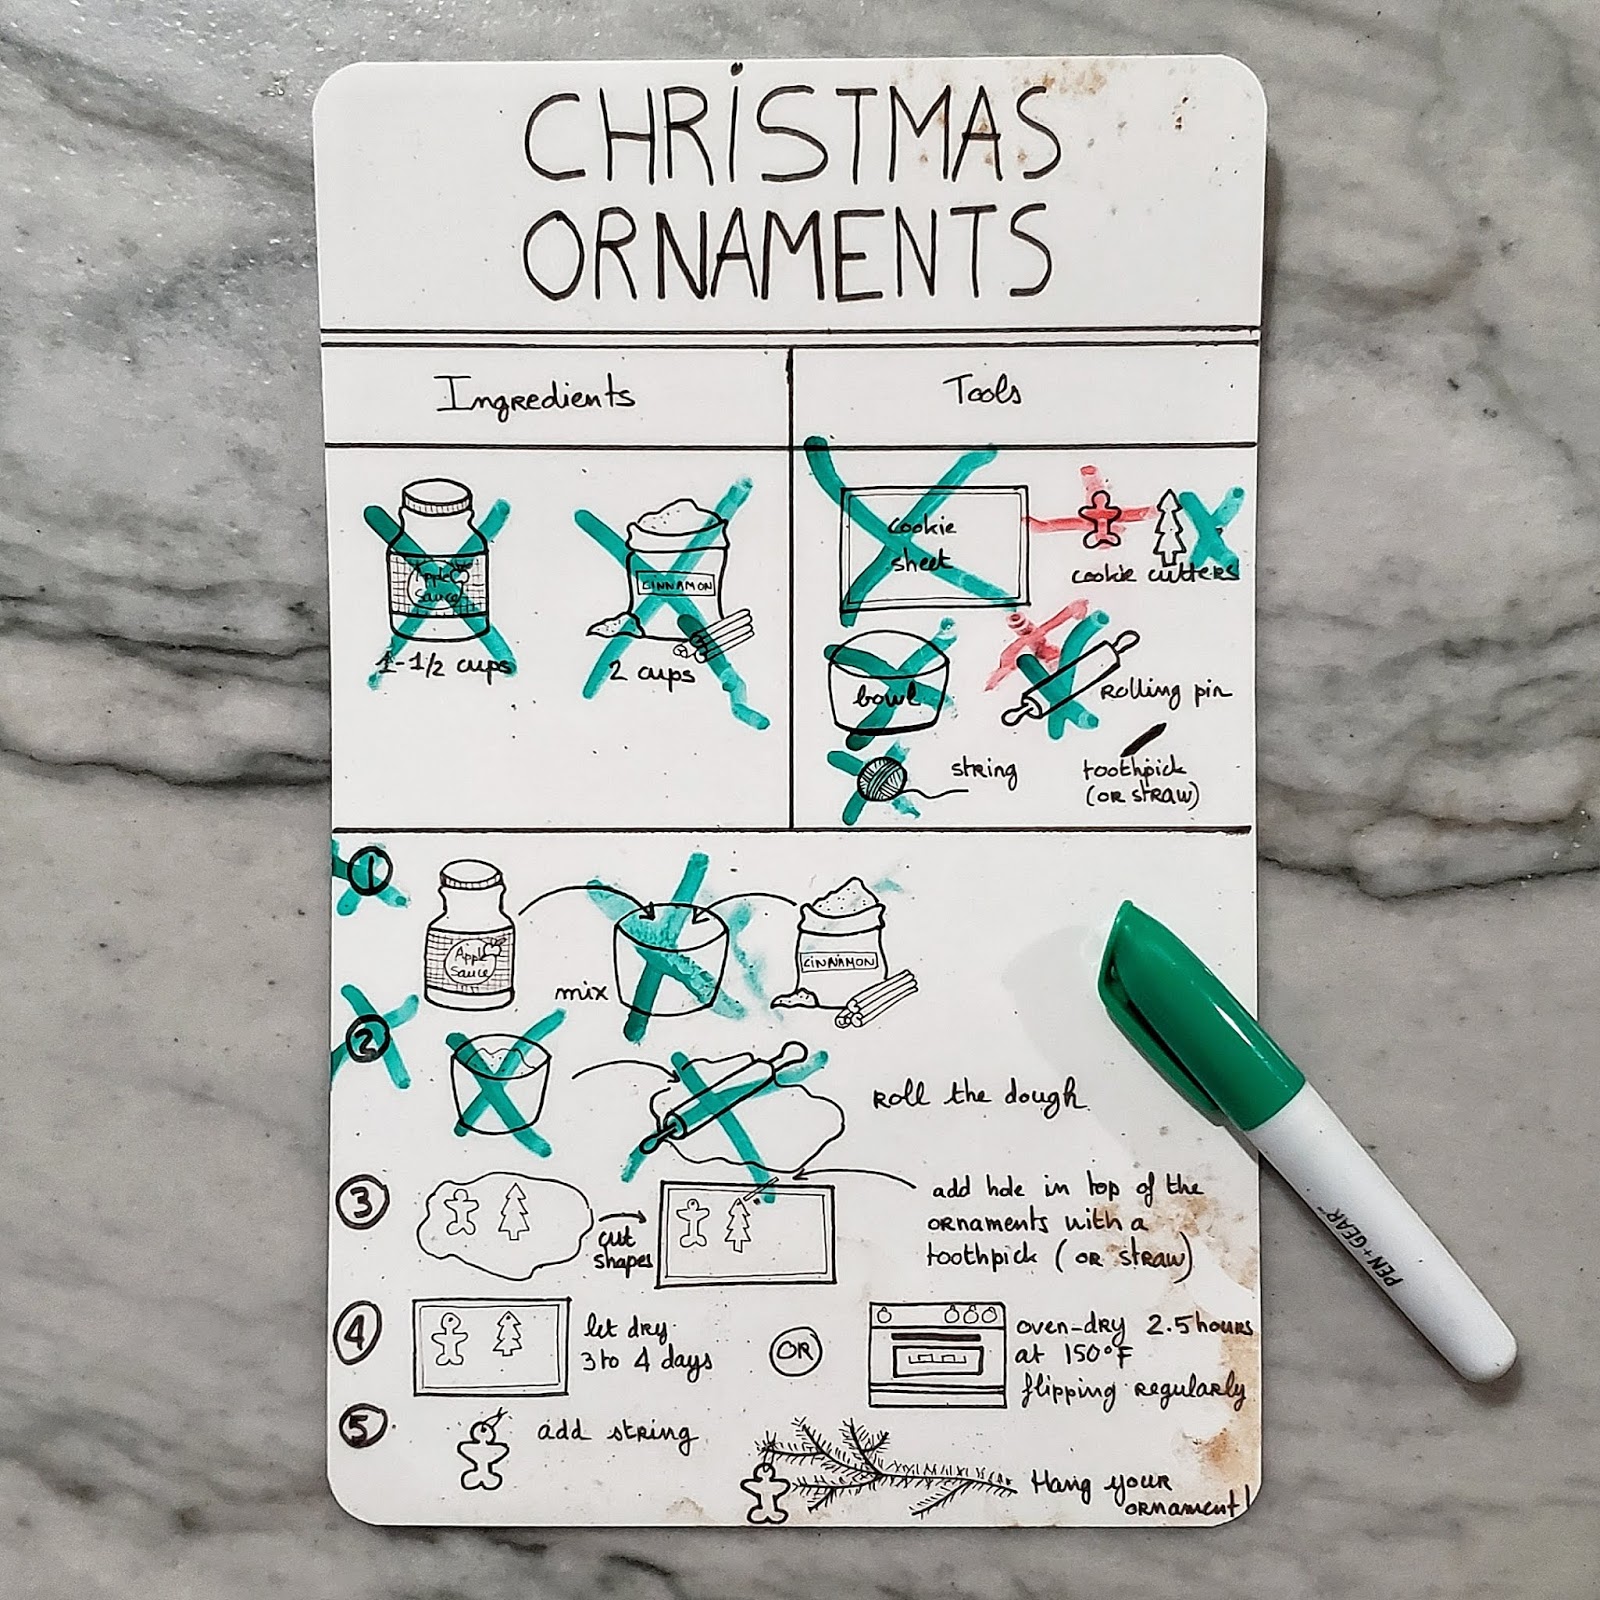 CHRiSTMAS
ORNAMENTS
Ingredients
Tools
Apple
Sauce
1-1/2 cups
CINNAMON
2 cups
cookie
sheet
cookie cutters
bowl
Rolling pin
string
toothpick
(OR STRAW)
1
Apple
Sauce
mix
CINNAMON
2
ROLL the dough
3
cut
shapes
add hole in top of the
ORNaments with a
toothpick (OR STRAW)
4
let dry
3 to 4 days
OR
oven-dry 2.5 hours
at 150°F
flipping regularly
5
add string
Hang your
ornament!
PEN+GEAR™